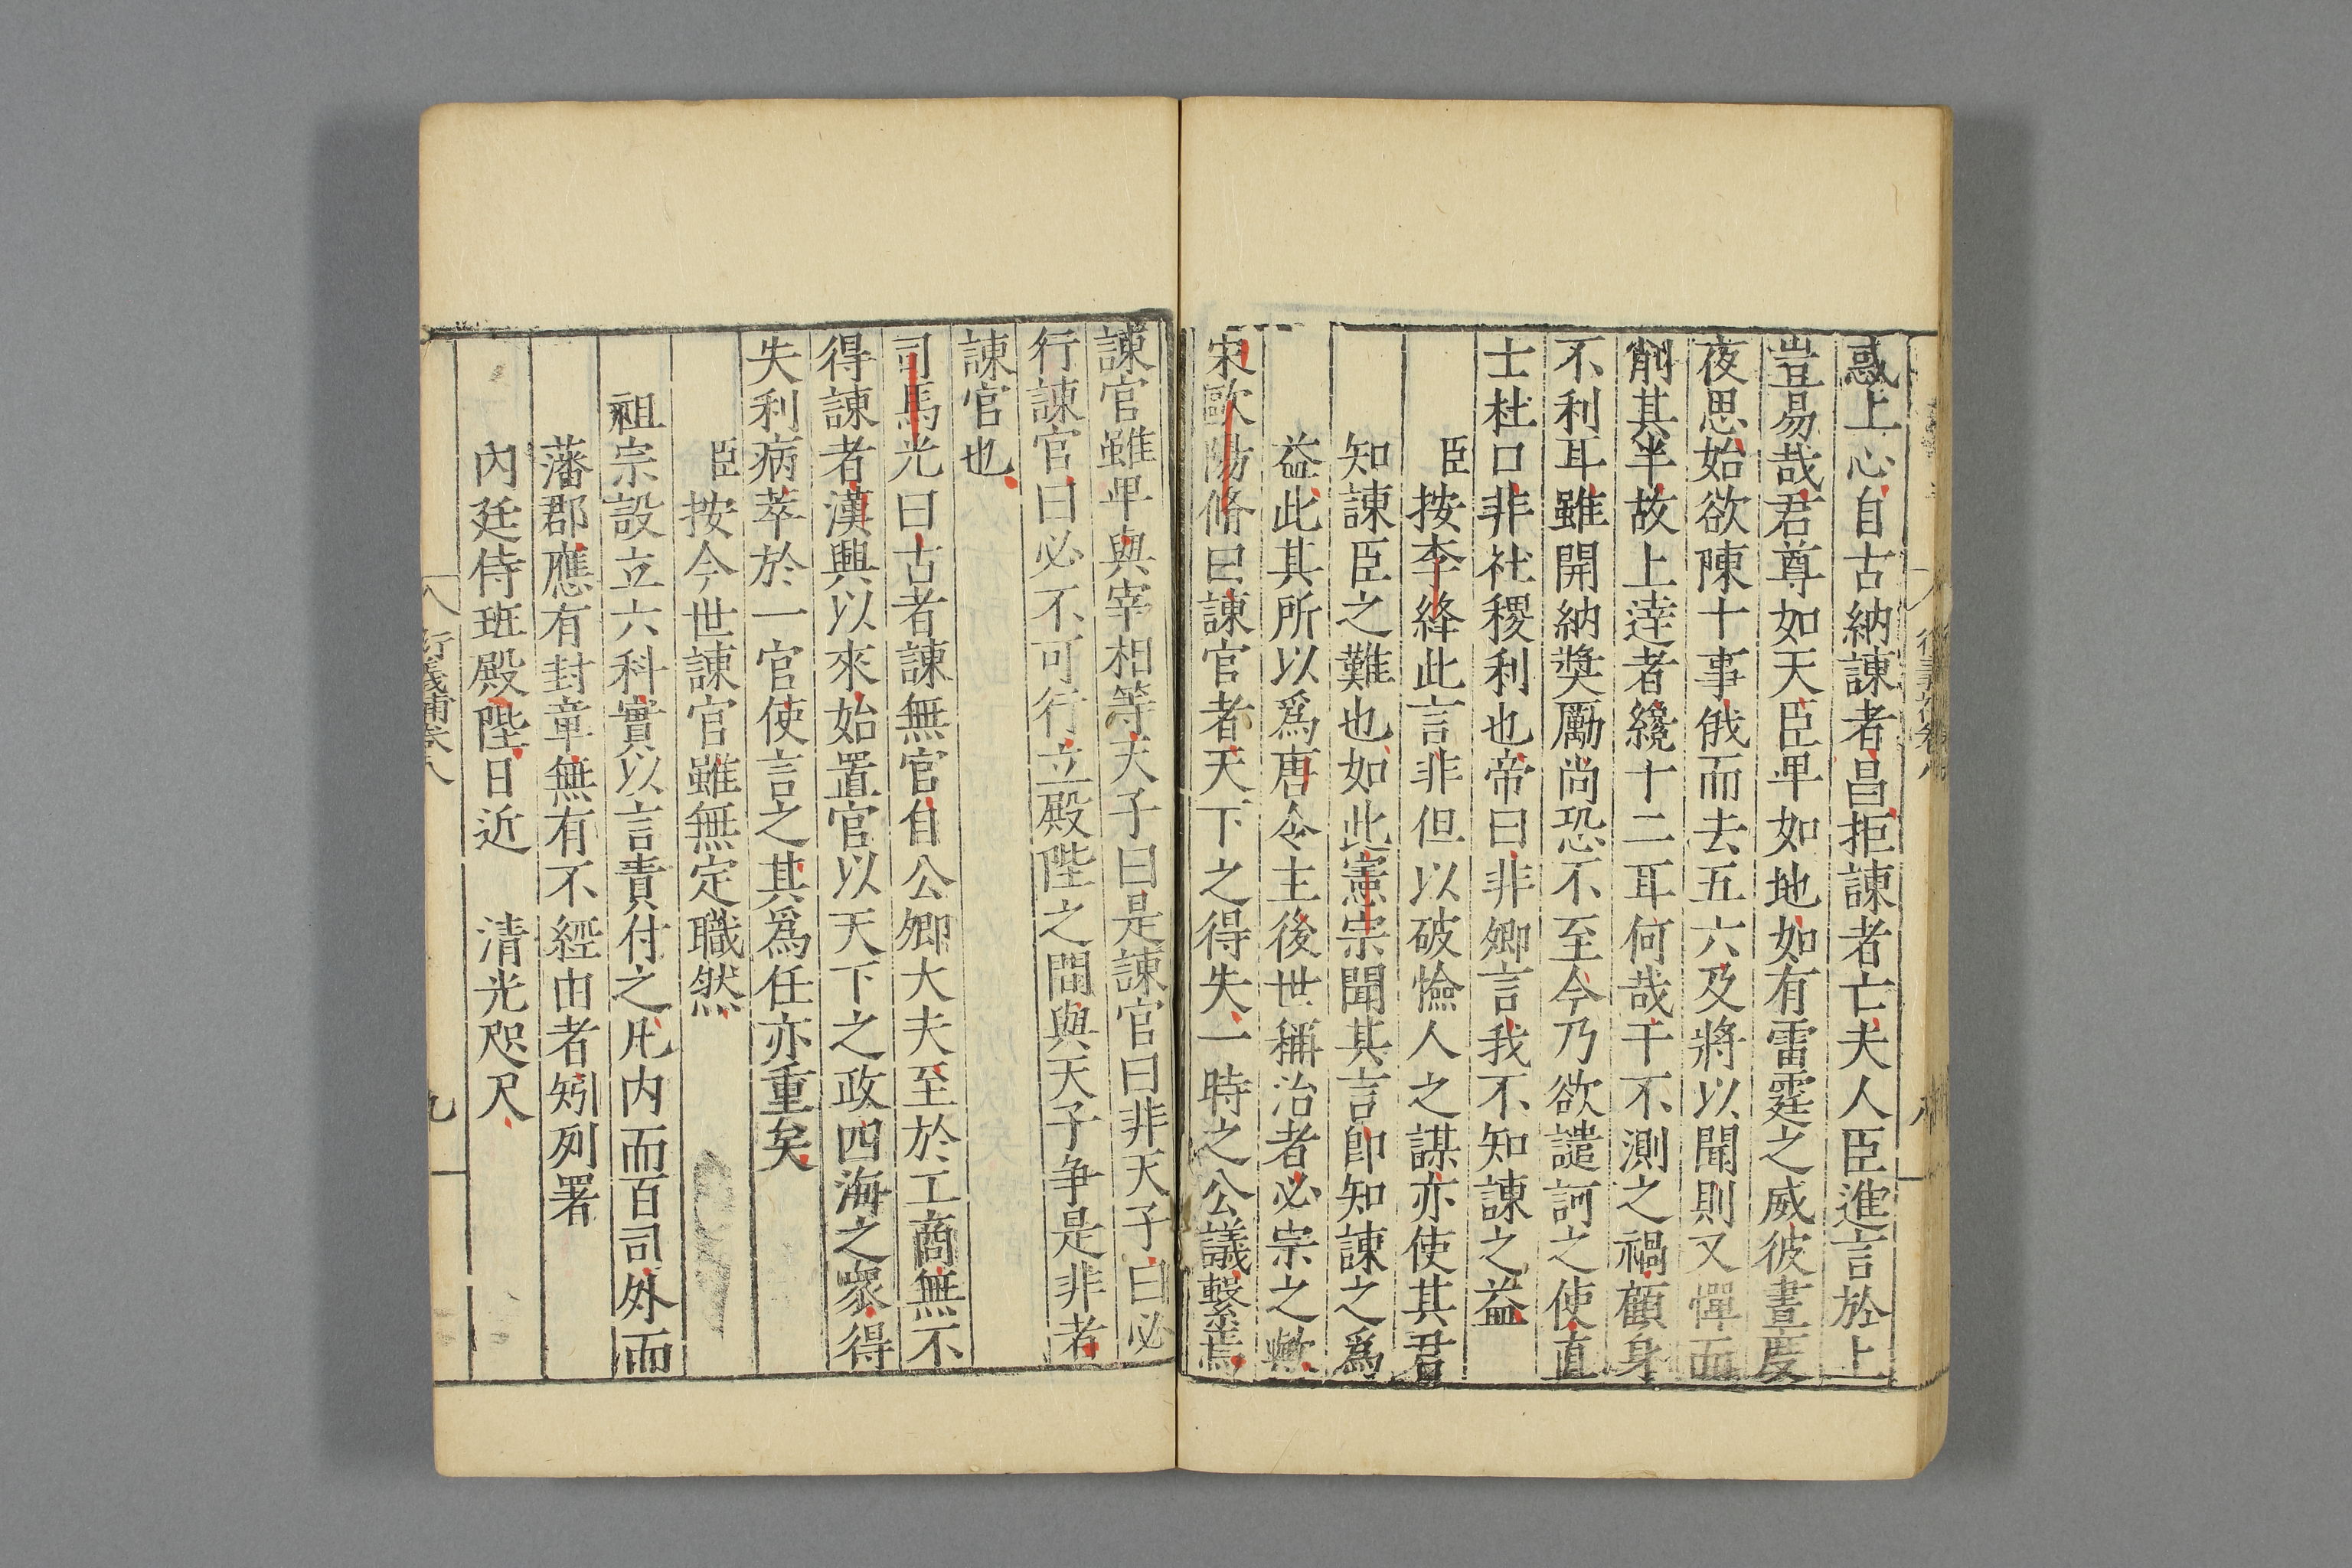 惑上心自古納諫者昌拒諫者亡夫人臣進言於上
豈易哉君尊如天臣卑如地如有雷霆之威彼晝度
夜思始欲陳十事俄而去五六及將以聞則又憚而
削其半故上達者纔十二耳何哉干不測之禍顧身
不利耳雖開納奬勵尚恐不至今乃欲譴訶之使直
士杜口非社稷利也帝曰非卿言我不知諫之益
臣按李絳此言非但以破憸人之謀亦使其君
知諫臣之難也如此憲宗聞其言卽知諫之爲
益此其所以爲唐令主後世稱治者必宗之歟
宋歐陽脩曰諫官者天下之得失一時之公議繫焉
諫官雖卑與宰相等天子曰是諫官曰非天子曰必
行諫官曰必不可行立殿陛之間與天子争是非者
諫官也
司馬光曰古者諫無官自公卿大夫至於工商無不
得諫者漢興以來始置官以天下之政四海之衆得
失利病萃於一官使言之其爲任亦重矣
臣按今世諫官雖無定職然
祖宗設立六科實以言責付之凡内而百司外而
藩郡應有封章無有不經由者矧列署
内廷侍班殿陛日近 清光咫尺
衍義補卷八 九